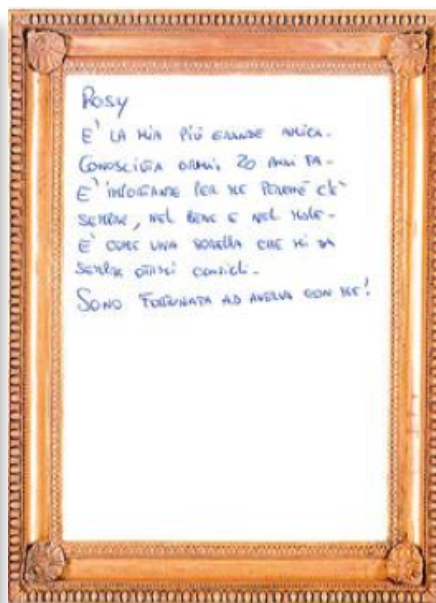 Rosy
E' LA MIA PIÙ GRANDE AMICA.
CONOSCIUTA ORMAI 20 ANNI FA.
E' IMPORTANTE PER ME PERCHÈ C'È
SEMPRE, NEL BENE E NEL MALE.
È COME UNA SORELLA CHE MI DA
SEMPRE OTTIMI CONSIGLI.
SONO FORTUNATA AD AVERLA CON ME!